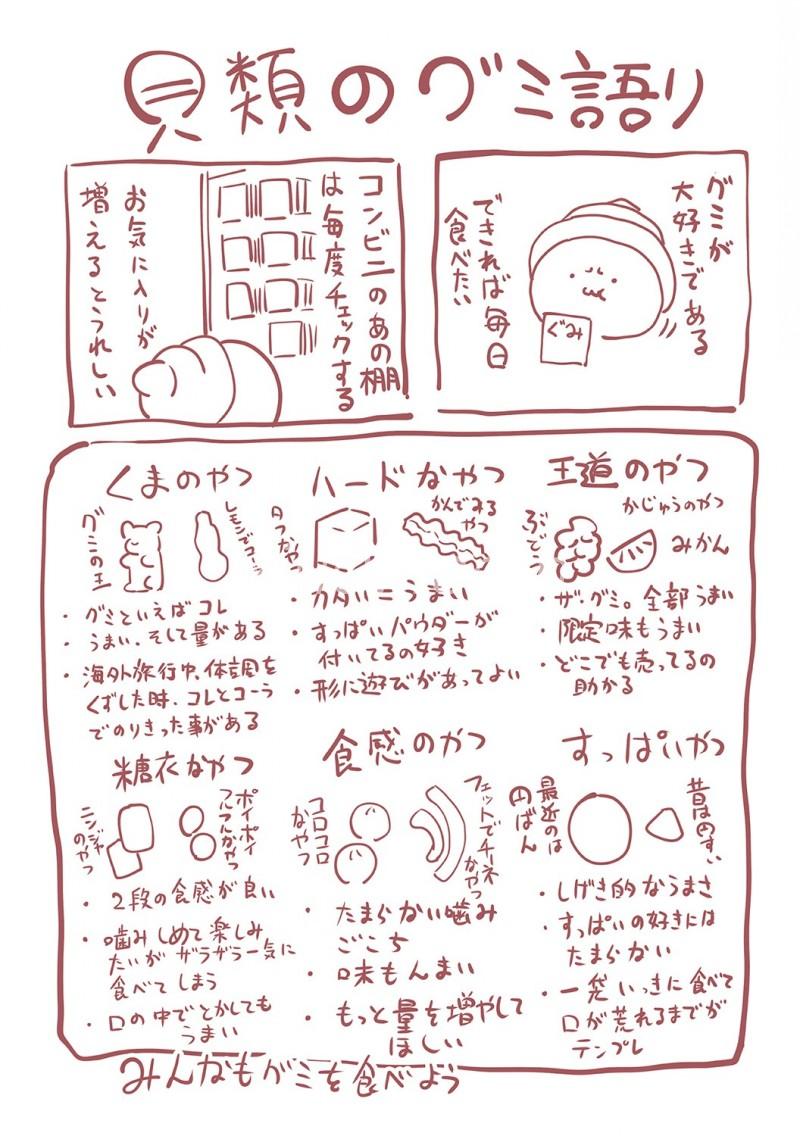 貝類のグミ語り
グミが
大好きである
できれば毎日
食べたい
ぐみ
コンビニのあの棚
は毎度チェックする
お気に入りが
増えるとうれしい
王道のやつ
かじゅうのやつ
ぶどう
みかん
・ザ・グミ。全部うまい
・限定味もうまい
・どこでも売ってるの
助かる
ハードなやつ
かんでみる
やつ
タフなやつ
・カタい＝うまい
・すっぱいパウダーが
付いてるの好き
・形に遊びがあってよい
くまのやつ
グミの王
レモンでコーラ
・グミといえばコレ
・うまい、そして量がある
・海外旅行中、体調を
くずした時、コレとコーラ
でのりきった事がある
すっぱいやつ
最近のは
円ばん
・しげき的なうまさ
・すっぱいの好きには
たまらない
・一袋いっきに食べて
口が荒れるまでが
テンプレ
食感のやつ
コロコロ
なやつ
フェットでチーネ
なやつ
・たまらない噛み
ごこち
・味もんまい
・もっと量を増やして
ほしい
糖衣なやつ
ニンジャ
のやつ
ポイポイ
なやつ
・2段の食感が良い
・噛みしめて楽しみ
たいがザラザラ一気に
食べてしまう
・口の中でとかしても
うまい
みんなもグミを食べよう